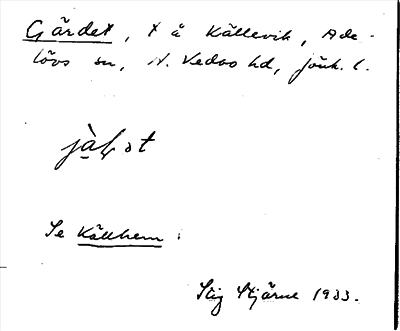 Gärdet, t å Källevik, Ade-
lövs sn, N. Vedbo hd, Jönk. l.
Se Källhem :
Stig Stjärne 1933.